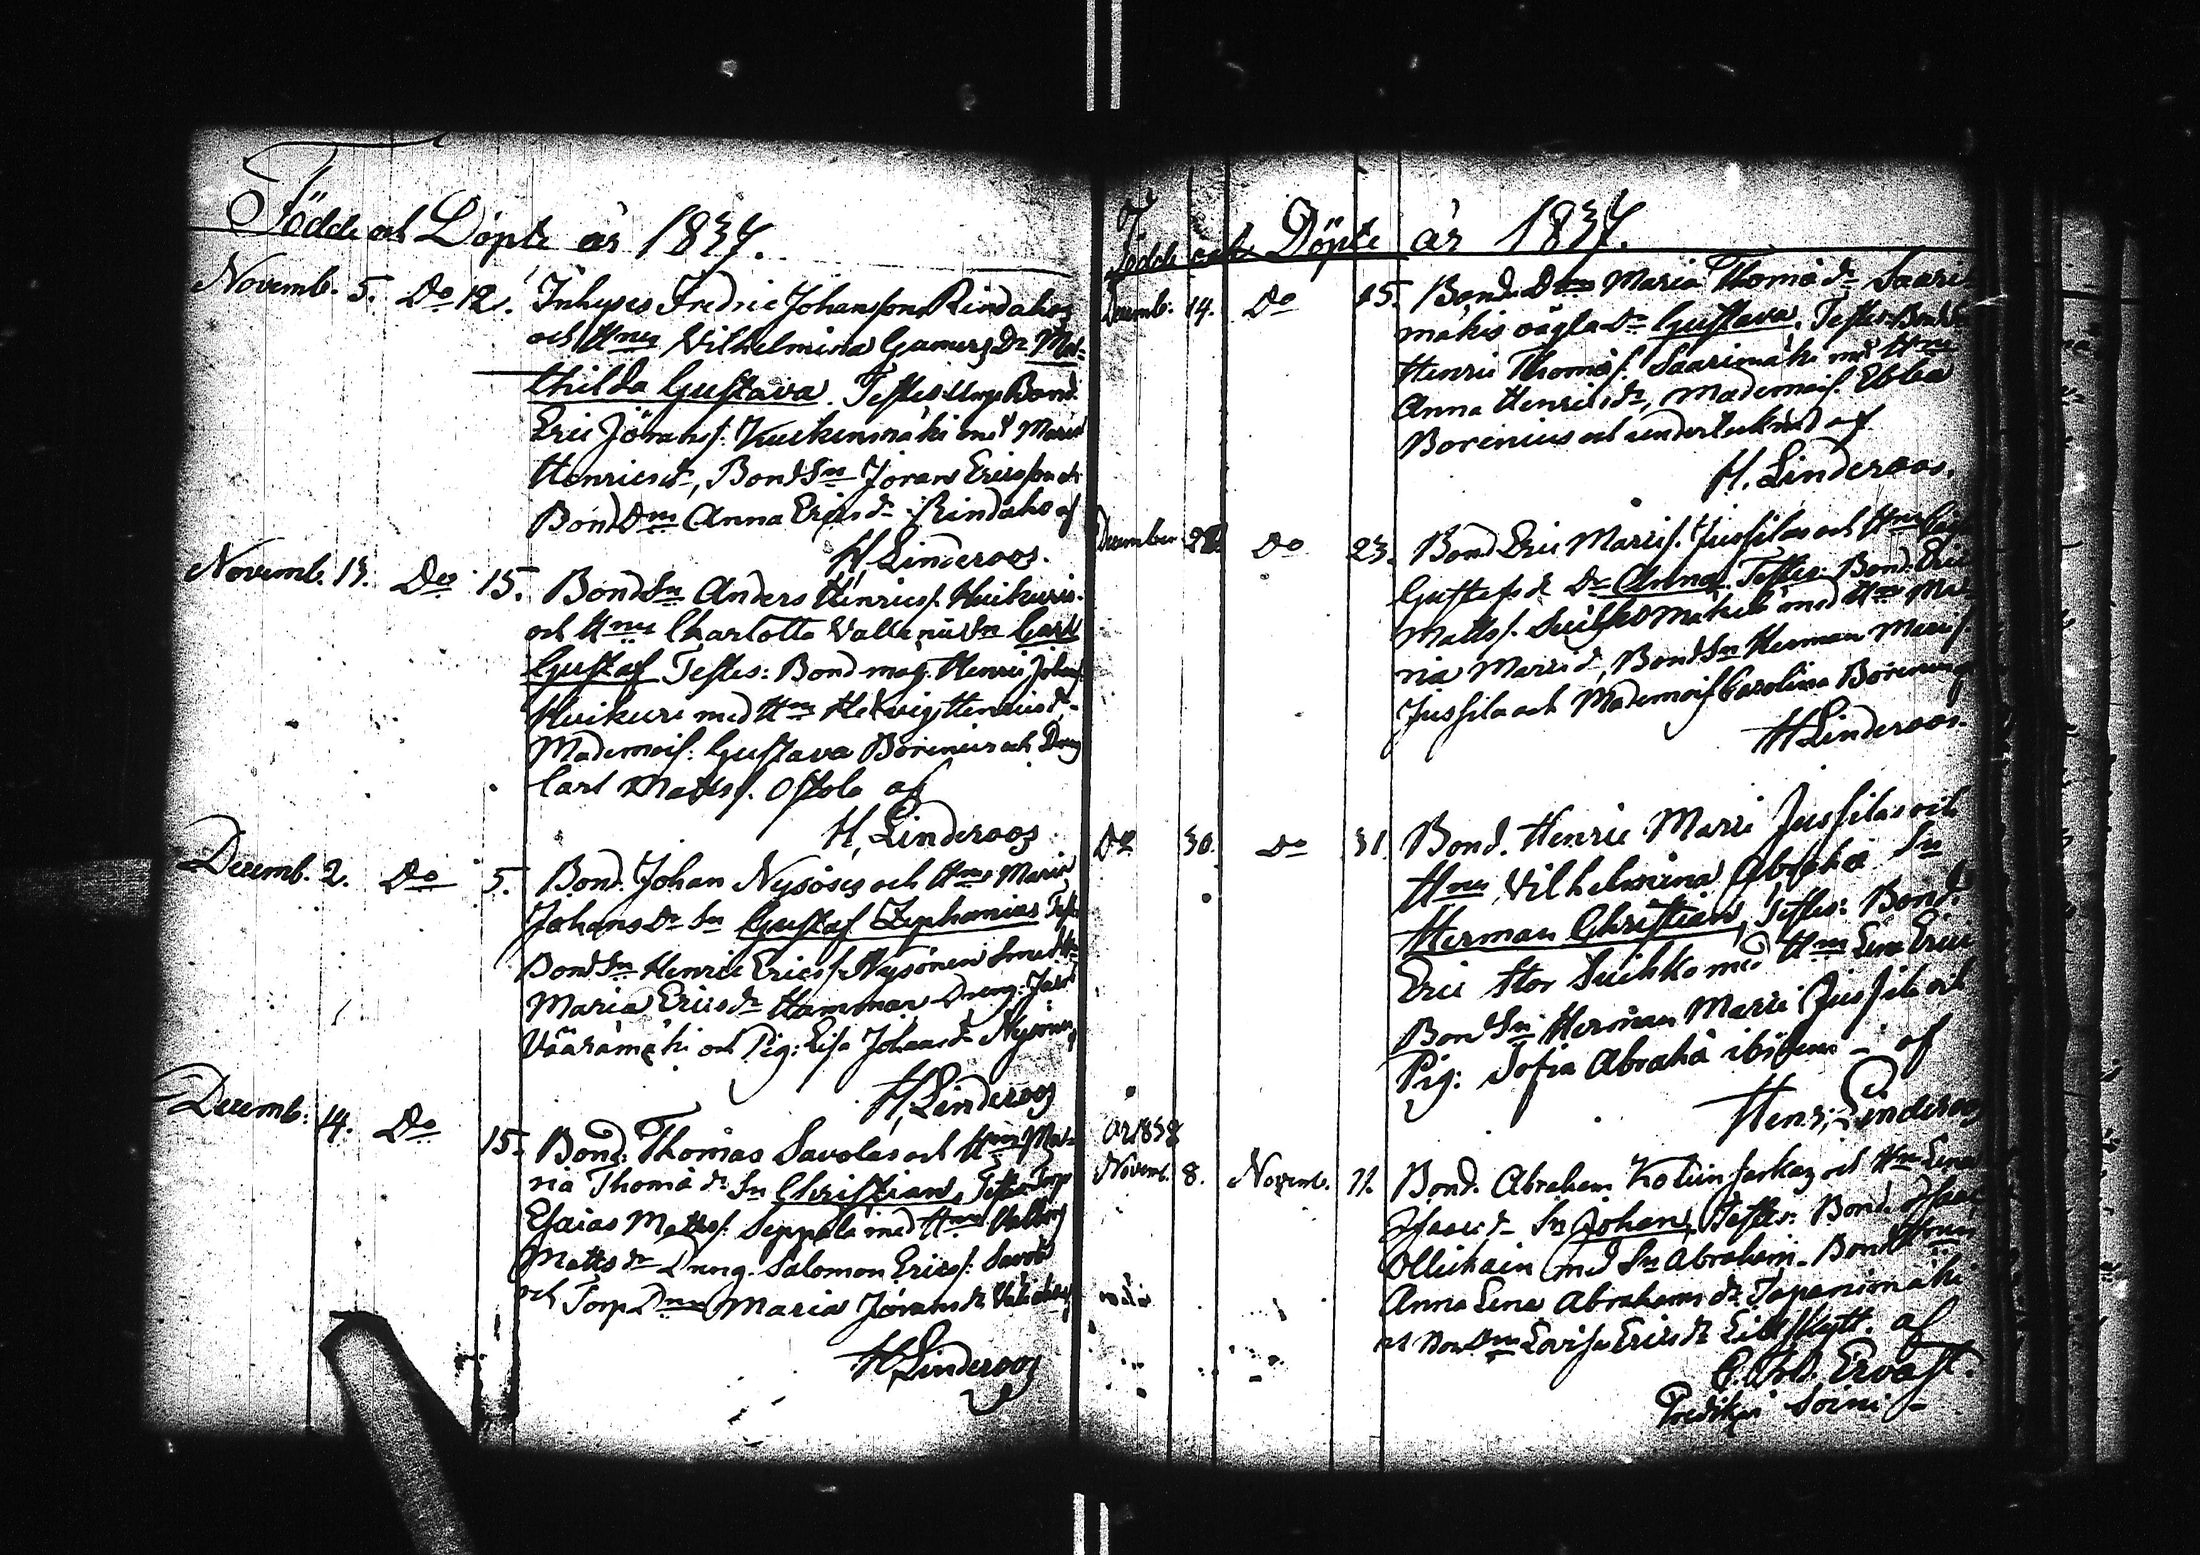 Födde och Döpte år 1837.
Novemb. 5. Do 12. Inhyses Fredric Johansson Rindahos
och Hnes Vilhelmina Gamers Dr Mat=
thilda Gustava. Testes: Bond.
Eric Jörans. Kuckinmäki med Maria
Henricsdr, BondSn Jöran Ericsson och
BondDn Anna Ericsdr Rindaho af
H. Linderoos.
Novemb. 13. Do 15. BondSn Anders Henrics. Huikuris
och Hnes Charlotta Vallenii Sn Carl
Gustaf Testes: Bond mag. Henric Johans.
Huikuri med Hnes Hedvig Henricsdr
Mademois: Gustava Borenius och Dreng
Carl Matts. Ostola af
H. Linderoos
Decemb. 2. Do 5. Bond. Johan Nysöses och Hnes Maria
Johansdr Sn Gustaf Zephanias Test:
BondSn Henric Erics. Nysönen
Maria Ericsdr Hammar Dreng:
Vääramäki och Pig: Lisa Johansdr Nysönen
H. Linderoos
Decemb: 14. Do 15. Bond: Thomas Savolas och Hnes Ma=
ria Thomædr Sn Christian, Testes Torp
Esaias Matts. Seppälä med Hnes Valborg
Mattsdr Dreng. Salomon Erics. Savola
och Torp Dn Maria Jöransdr
H. Linderoos
Födde och Döpte år 1837.
Decemb: 14. Do 15. Bond. Dn Maria Thomædr Saari=
mäkis oägta Dr Gustava. Testes: Bond.
Henric Thomæs. Saarimäki med Hnes
Anna Henricsdr, Mademois. Ebba
Borenius och undertecknad af
H. Linderoos.
December 22. Do 23. Bond. Eric Marris. Jussilas och Hnes
Gustafsdr Dr Anna. Testes: Bond. Eric
Matts. Suihkomäki med Hnes Ma=
ria Marrisdr, BondSn Herman Marris.
Jussila och Mademois Carolina Borenius
H. Linderoos.
Do 30. Do 31. Bond. Henric Marri Jussilas och
Hnes Vilhelmina Abrahæ Sn
Herman Christian, Testes: Bond.
Eric Stor Suihko med Hnes Lisa Erics
BondSn Herman Marri Jussila och
Pig: Sofia Abrahæ ibidem – af
Henr; Linderoos
År 1838
Novemb. 8. Novemb. 11. Bond. Abraham Kotiinsarkas och Hnes Lena
Isaacsdr Sn Johan, Testes: Bond. Isaac
Ollikain med Sn Abraham. Bond Hnes
Anna Lena Abrahamsdr Tapanimäki
och BondDn Lovisa Ericsdr Lillskytt. af
Ervast.
Predikan Soini